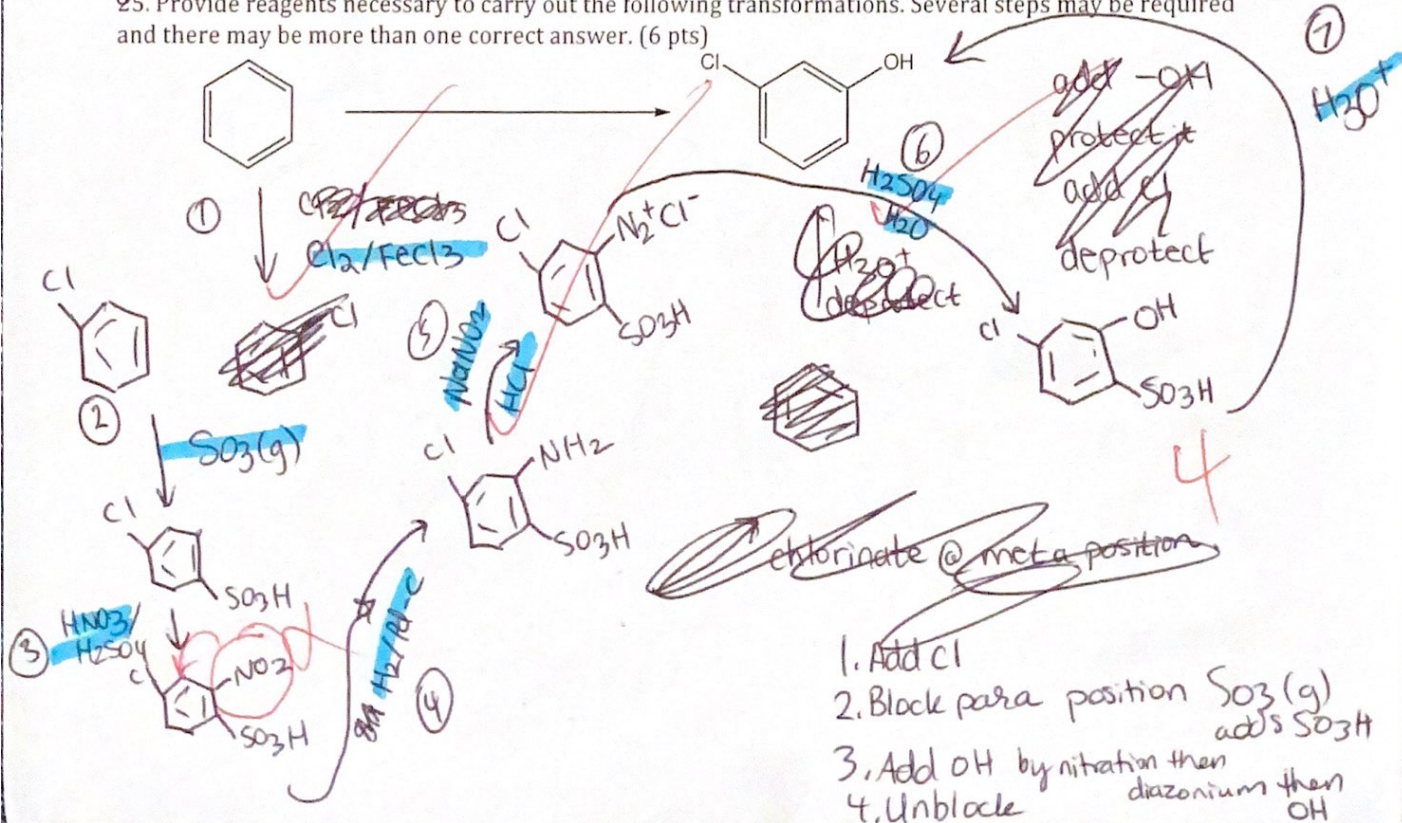 25. Provide reagents necessary to carry out the following transformations. Several steps may be required
and there may be more than one correct answer. (6 pts)
Cl OH
add -OH
protect it
add Cl
deprotect
7
H3O+
1
Cl2/FeCl3
Cl
Cl
2
SO3(g)
Cl
SO3H
3
HNO3/
H2SO4
Cl
NO2
SO3H
4
H2/Pd-C
Cl
NH2
SO3H
5
NaNO2
HCl
Cl
N2+Cl-
SO3H
6
H2SO4
H2O
H3O+
deprotect
Cl
OH
SO3H
4
chlorinate @ meta position
1. Add Cl
2. Block para position SO3(g)
adds SO3H
3. Add OH by nitration then
diazonium then
OH
4. Unblock